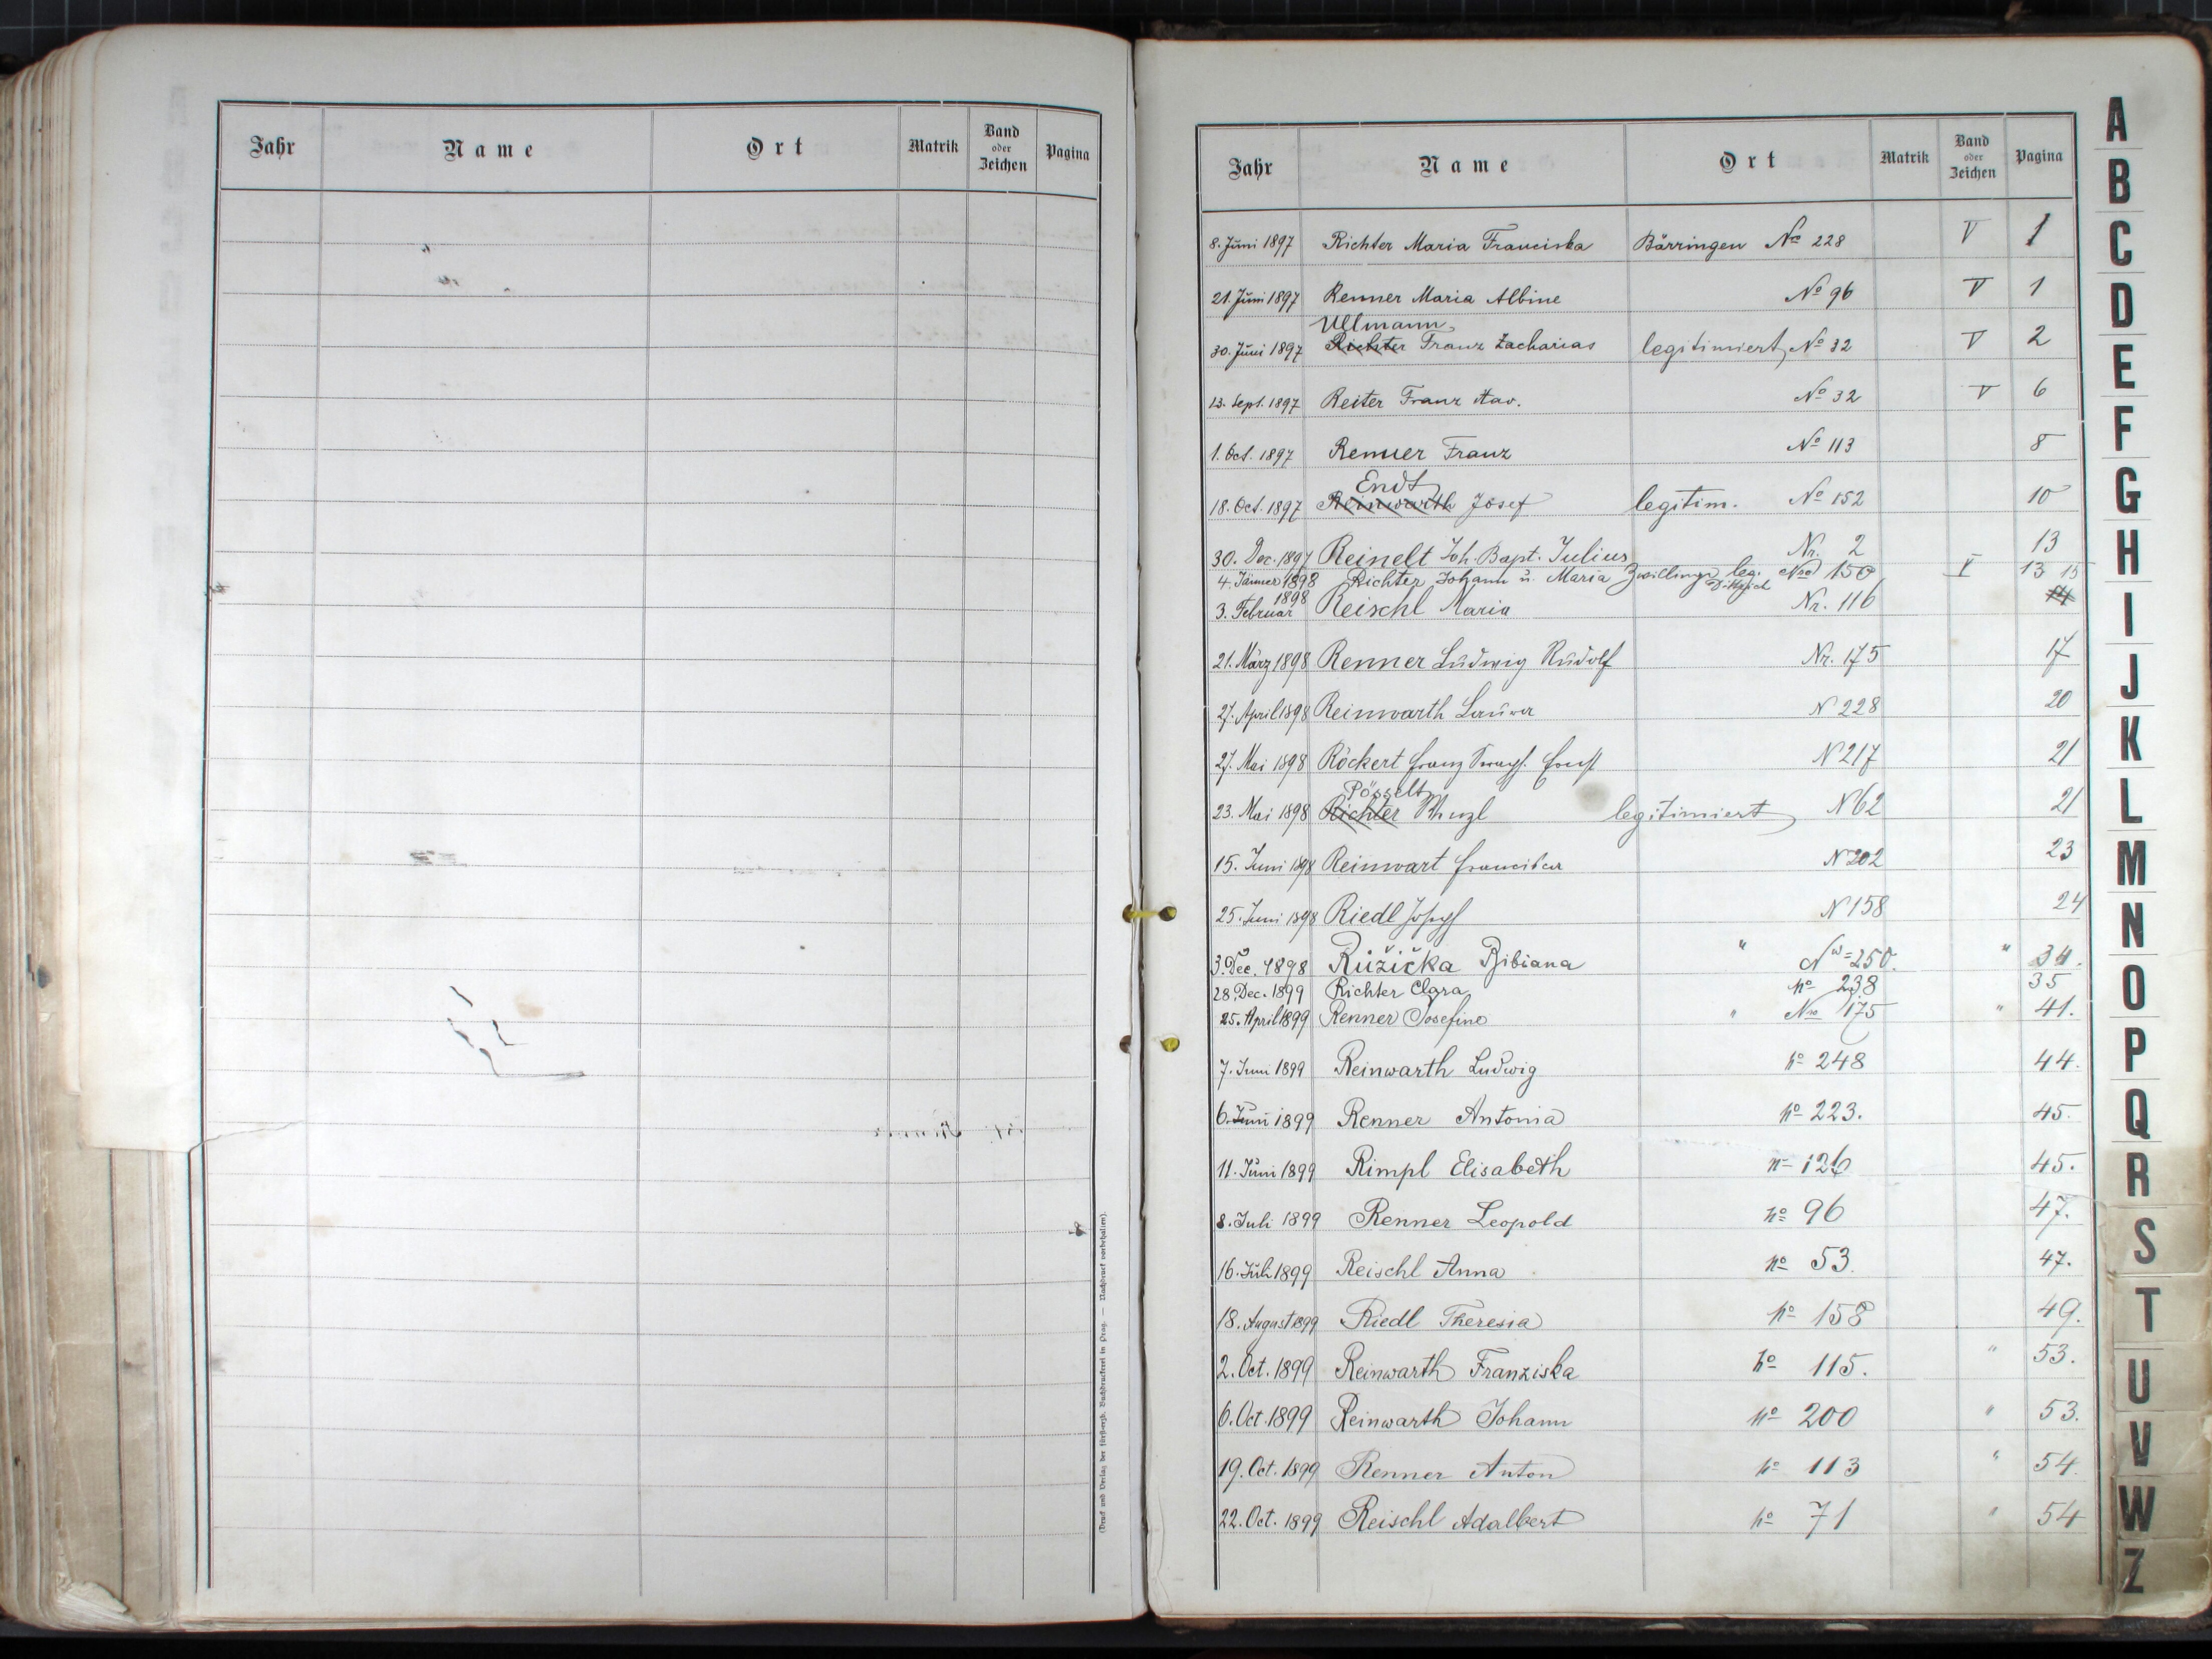 Jahr Name Ort Matrik Band oder Zeichen Pagina
(Druck und Verlag der fürst-erzb. Buchdruckerei in Prag. — Nachdruck vorbehalten).
Jahr Name Ort Matrik Band oder Zeichen Pagina
8. Juni 1897 Richter Maria Franciska Bärringen No 228 V 1
21. Juni 1897 Renner Maria Albine No 96 V 1
Ullmann
30. Juni 1897 Richter Franz Zacharias legitimiert, No 32 V 2
13. Sept. 1897 Reiter Franz Xav. No 32 V 6
1. Oct. 1897 Renner Franz No 113 8
Endt
18. Oct. 1897 Reinwarth Josef legitim. No 152 10
30. Dec. 1897 Reinelt Joh. Bapt. Julius Nr. 2 13
4. Jänner 1898 Richter Johann u. Maria Zwillinge leg. No 150 V 13 15
3. Februar 1898 Reischl Maria Nr. 116
21. März 1898 Renner Ludwig Rudolf Nr. 175 17
27. April 1898 Reinwarth Laura N 228 20
27. Mai 1898 Röckert Franz Ernst N 217 21
Pösselt
23. Mai 1898 Richter Wenzl legitimiert N 62 21
15. Juni 1898 Reinwart Franciska N 202 23
25. Juni 1898 Riedl Joseph N 158 24
3. Dec. 1898 Růžička Bibiana " No 250. " 34.
28. Dec. 1899 Richter Clara no 238 35
25. April 1899 Renner Josefine " No 175 " 41.
7. Juni 1899 Reinwarth Ludwig no 248 44.
6. Juni 1899 Renner Antonia no 223. 45.
11. Juni 1899 Rimpl Elisabeth no 126 45.
8. Juli 1899 Renner Leopold no 96 47.
16. Juli 1899 Reischl Anna no 53. 47.
18. August 1899 Riedl Theresia no 158 49.
2. Oct. 1899 Reinwarth Franziska no 115. " 53.
6. Oct. 1899 Reinwarth Johann no 200 " 53.
19. Oct. 1899 Renner Anton no 113 " 54.
22. Oct. 1899 Reischl Adalbert no 71 " 54
A
B
C
D
E
F
G
H
I
J
K
L
M
N
O
P
Q
R
S
T
U
V
W
Z